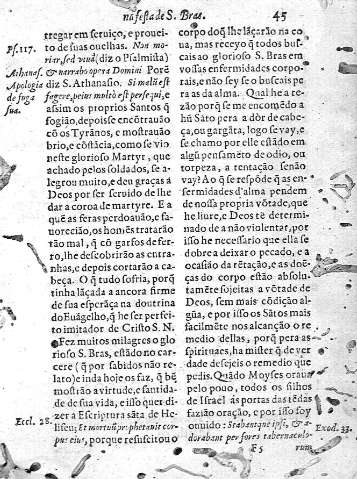 na festa de S. Bras.
45
tregar em seruiço, e proueito
de suas ouelhas. Non moriar,
sed viuã (diz o Psalmista)
& narrabo opera Domini Porẽ
diz S. Athanasio. Si malũ est
fugere, peius multò est persequi, e
assim os proprios Santos q̃
fogião, depois se encõtrauão
cõ os Tyrãnos, e mostrauão
brio, e cõstãcia, como se vio
neste glorioso Martyr, que
achado pelos soldados, se a-
legrou muito, e deu graças â
Deos por ser seruido de lhe
dar a coroa de martyre. E a
quẽ as feras perdoauão, e fa-
uorecião, os homẽs tratarão
tão mal, q̃ cõ garfos de fer-
ro, lhe descobrirão as entra-
nhas, e depois cortarão a ca-
beça. O q̃ tudo sofria, porq̃
tinha lãçada a ancora firme
de sua esperãça na doutrina
do Euãgelho, q̃ he ser perfei-
to imitador de Cristo S. N.
Fez muitos milagres o glo-
rioso S. Bras, estãdo no car-
cere (q̃ por sabidos não re-
lato) e inda hoje os faz, q̃ bẽ
mostrão a virtude, e santida-
de de sua vida, e isso quer di-
zer a Escriptura sãta de He-
liseu; Et mortuũ prophetauit cor-
pus eius, porque resuscitou o
Ps. 117.
Athanas.
Apologia
de fuga
sua.
Eccl. 28.
corpo doq̃ lhe lãçarão na co
ua, mas receyo q̃ todos bus-
cais ao glorioso S. Bras em
vossas enfermidades corpo-
rais, e não sey se o buscais pe
ra as da alma. Qual he a re-
zão porq̃ se me encomẽdo a
hũ Sãto pera a dòr de cabe-
ça, ou gargãta, logo se vay, e
se chamo por elle estãdo em
algũ pensamẽto de odio, ou
torpeza, a tentação senão
vay? Ao q̃ se respõde q̃ as en-
fermidades d'alma pendem
de nossa propria võtade, que
he liure, e Deos tẽ determi-
nado de a não violentar, por
isso he necessario que ella se
dobre a deixar o pecado, e a
ocasião da rẽtação, e as doẽ-
ças do corpo estão absolu-
tamẽte sojeitas a võtade de
Deos, sem mais cõdição al-
gũa, e por isso os Sãtos mais
facilmẽte nos alcanção o re
medio dellas, porq̃ pera as
spirituaes, ha mister q̃ de ver
dade desejeis o remedio que
pedis. Quãdo Moyses oraua
pelo pouo, todos os filhos
de Israel às portas das tẽdas
fazião oração, e por isso foy
ouuido: Stabantque ipsi, & a-
dorabant per fores tabernaculo-
Exod. 33.
F 5
rum